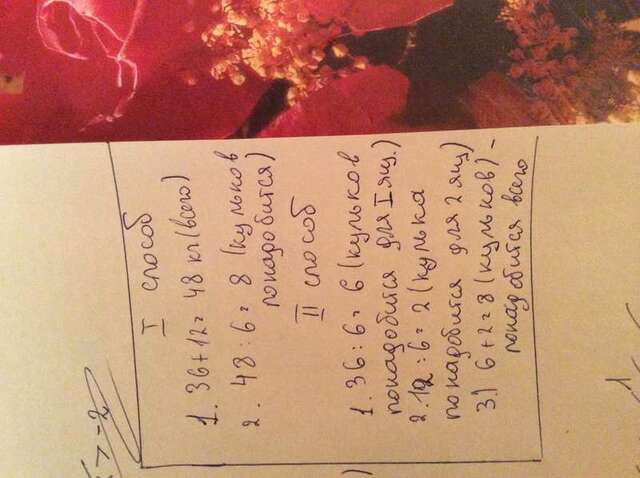 I способ
1. 36+12= 48 кг (всего)
2. 48 : 6 = 8 (кульков
понадобится)
II способ
1. 36 : 6 = 6 (кульков
понадобится для I ящ.)
2. 12 : 6 = 2 (кулька
понадобится для 2 ящ)
3.) 6+2=8 (кульков) -
понадобится всего